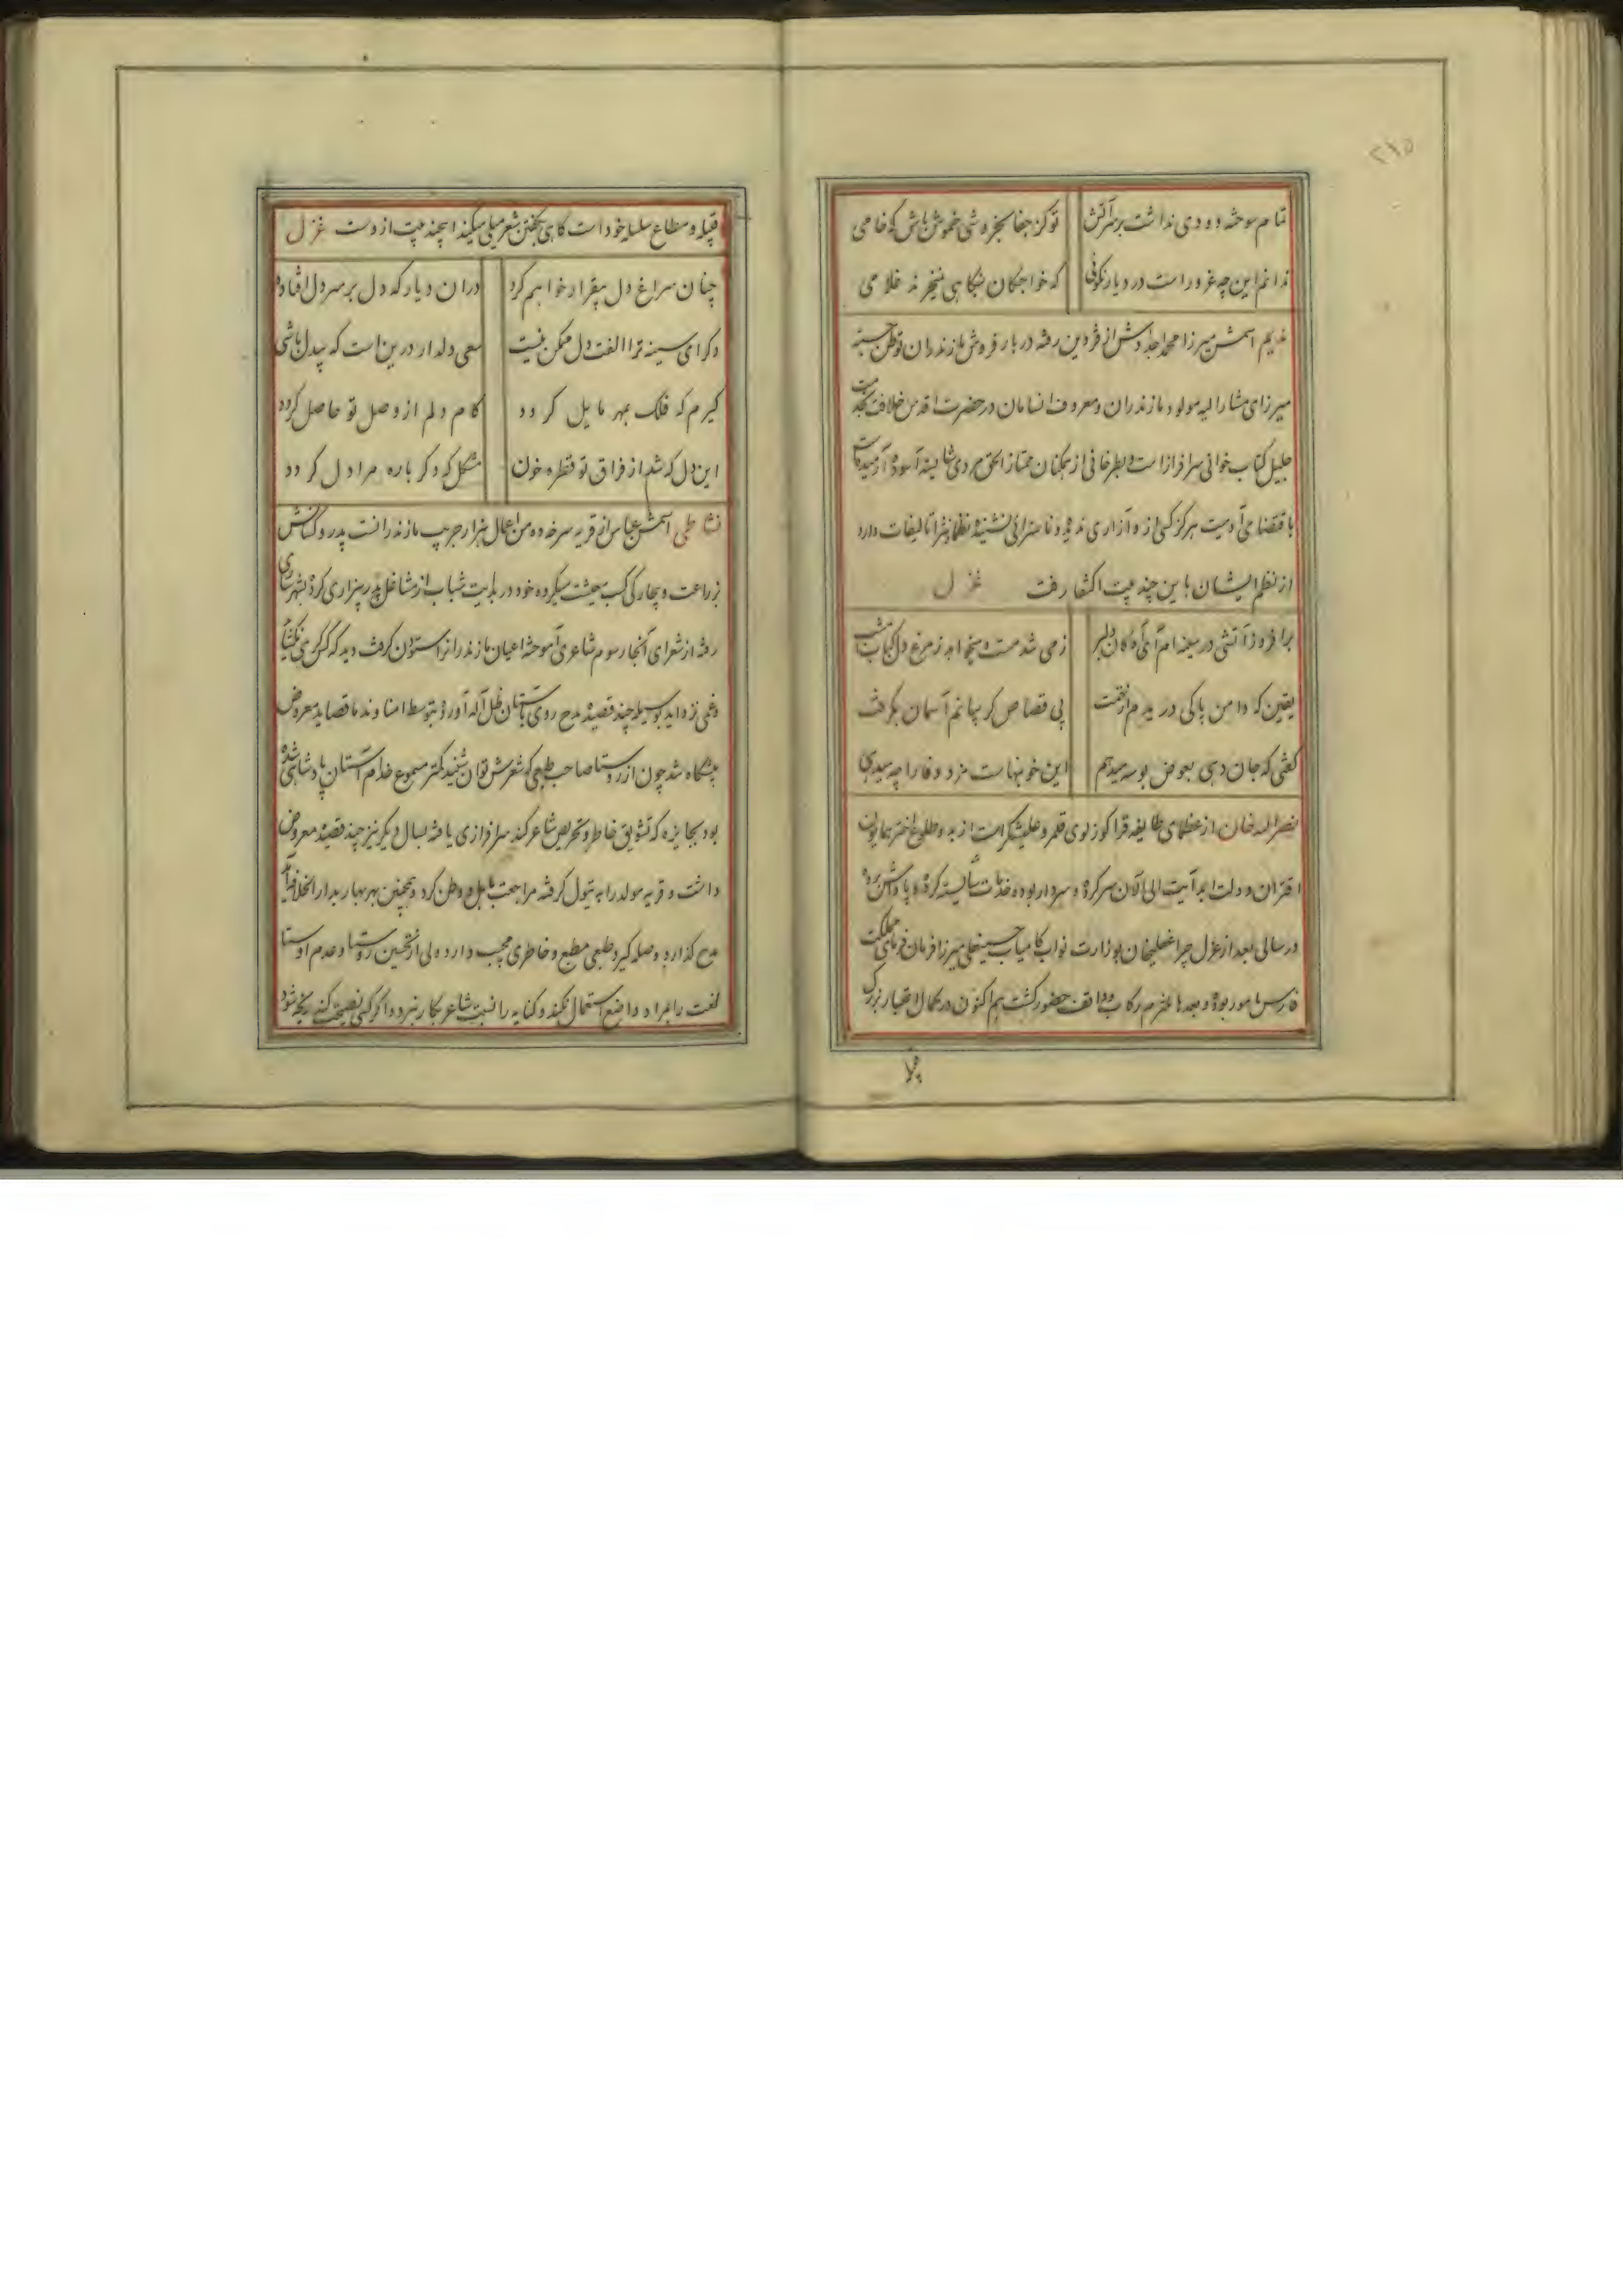 ۲۱۵
تمام سوخته دودی نداشت بر سر آتش تو کز جفا بخروشی خموش باش که خامی
ندانم این چه غرور است در دیار نکوئی که خواجگان بنگاهی نمیخرند غلامی
ندیم اسمش میرزا محمد اجدادش از قزوین رفته در بار فروش مازندران توطن جسته
میرزای مشارالیه مولود مازندران و معروف انسامان در حضرت اقدس خلافت بخدمت
جلیل کتاب خوانی سرافراز است و بظرخافی از همکنان ممتاز الحق مردی شایسته آسوده آرمیده است
باقتضای آدمیت هرگز کسی ازو آزاری ندیده و ناسزائی نشنیده نظما و نثرا تالیفات دارد
از نظم ایشان باین چند بیت اکتفا رفت غزل
برافروز آتشی در سینه ام ای دلبر ز می شد مست و میخواهد ز مرغ دل کباب امشب
یقین که دامن پاکی دریدم از تهمت پی قصاص گریبانم آسمان بگرفت
گفتی که جان دهی بعوض بوسه میدهم این خونبهاست مزد وفا را چه میدهی
نصرالله خان از عظمای طایفه قراگوزلوی قلمرو علیشکر است از بدو طلوع اختر همایون
اقتران دولت ابد آیت الی الآن سرکرده و سردار بوده خدمات شایسته کرده و پاداش برده
در سالی بعد از عزل چراغعلیخان بوزارت نواب کامیاب حسینعلی میرزا فرمان فرمای مملکت
فارس مامور بوده و بعدها ملتزم رکاب و واقف حضور گشت هم اکنون در کمال اختیار بزرگ
قبیله و مطاع سلسله خود است گاهی بگفتن شعر میلی میکند اینچند بیت ازوست غزل
چنان سراغ دل بیقرار خواهم کرد دران دیار که دل بر سر دل افتاده
در کرای سینه ترا الفت دل ممکن نیست سعی دلدار درین است که بیدل باشی
گیرم که فلک بمهر مایل گردد کام دلم از وصل تو حاصل گردد
این دل که شد از فراق تو قطره خون مشکل که دگر باره مرا دل گردد
نشاطی اسمش عباس از قریه سرخده من اعمال هزار جریب مازندرانست پدر و کسانش
بزراعت و کسب معیشت میکرده خود در بدایت شباب از مشاغل پدر بیزاری کرده بشهر ساری
رفته از شعرای آنجا رسوم شاعری آموخته اعیان مازندرانرا ستودن گرفت دید که گرهی نگشاید
و غمی نزداید بوسیله چند قصیده مدح روی باستان ظل اله آورده بتوسط امنا و ندما قصاید معروض
پیشگاه شد چون از روستا صاحب طبعی که شعرش توان شنید کمتر مسموع خدام آستان پادشاهی شده
بود بجایزه که تشویق خاطر و تحریص شاعر کند سرافرازی یافته بسال دیگر نیز چند قصیده معروض
داشت و قریه مولد را به تیول گرفته مراجعت باهل و وطن کرد و همچنین بهر بهار بدارالخلافه آید
مدح گذارد و صله گیرد طبعی مطبع و خاطری معجب دارد ولی از تحسین روستا و عدم اوستا
لغت را بمراد واضع استعمال نکند و کنایه را نسبت شاعر بکار نبرد و اگر کسی نصیحت کند رنجه شود